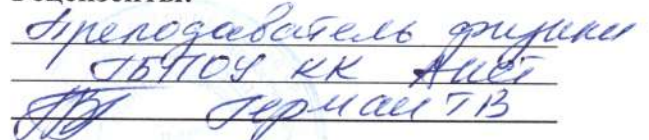 Рецензенты:
Преподаватель физики
ГБПОУ КК АИСТ
Герман ТВ